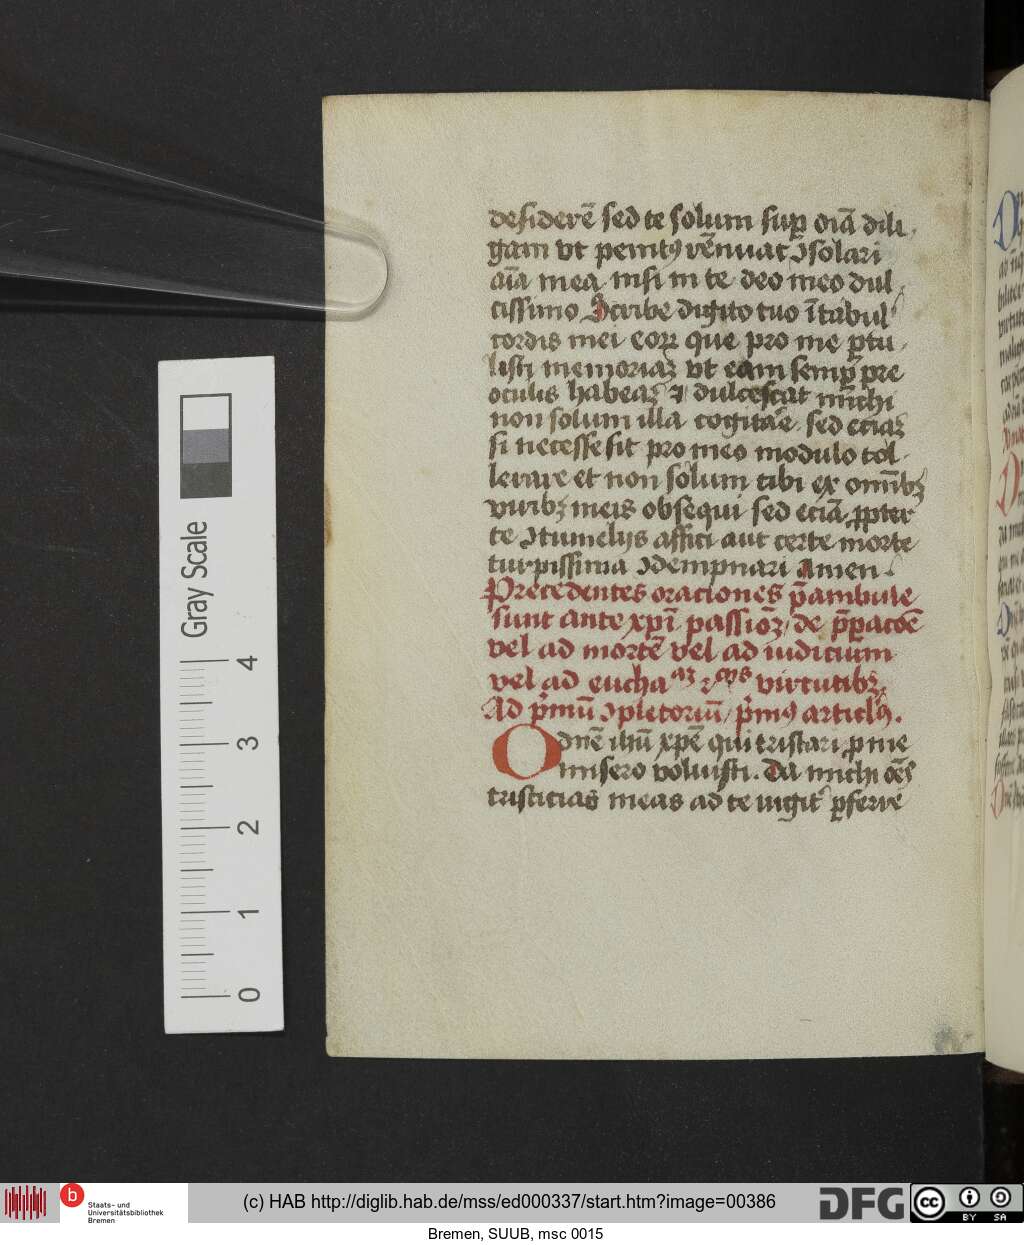 desiderē sed te solum suꝑ oīā dili
gam vt penitꝰ rēnuat ꝯsolari
aīa mea nisi in te deo meo dul
cissimo Scribe digito tuo ī tabul᷒
cordis mei eoꝝ que pro me ꝑtu
listi memoriaꝫ vt eam semꝑ pre
oculis habeaꝫ ⁊ dulcescat michi
non solum illa cogitāe sed eciaꝫ
si necesse sit pro meo modulo tol
lerare et non solum tibi ex omībꝫ
viribꝫ meis obsequi sed eciā ꝓpter
te ꝯtumelijs affici aut certe morte
turpissima ꝯdempnari Amen
Precedentes oraciones p̄ambule
sunt ante xp̄i passioꝫ / de p̄ꝑacōe
vel ad mortē vel ad iudicium
vel ad eucha
virtutibꝫ
Ad p̄mū ꝯpletoriū / p̄mꝰ articlꝰ.
O dn̄e ih̄u xp̄e qui tristari ꝓ me
misero voluisti. Da michi oēs
tristicias meas ad te ꝑferre
Gray Scale
4
3
2
1
0
b
Staats- und
Universitätsbibliothek
Bremen
(c) HAB http://diglib.hab.de/mss/ed000337/start.htm?image=00386
DFG
cc
BY
SA
Bremen, SUUB, msc 0015